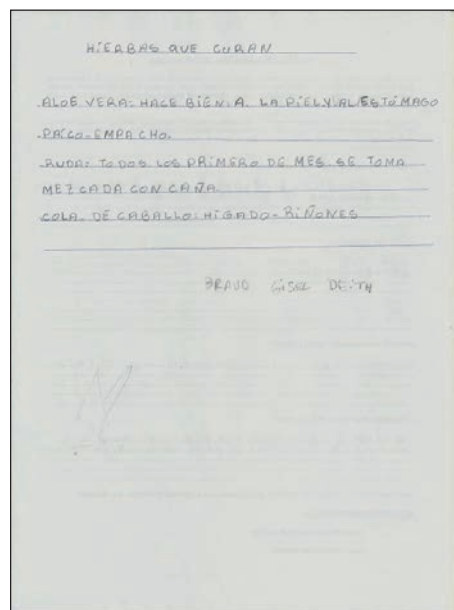 HIERBAS QUE CURAN
ALOE VERA: HACE BIEN. A. LA PIEL Y AL ESTÓMAGO
PAICO-EMPACHO.
RUDA: TODOS LOS PRIMERO DE MES SE TOMA
MEZCADA CON CAÑA
COLA DE CABALLO: HIGADO-RIÑONES
BRAVO